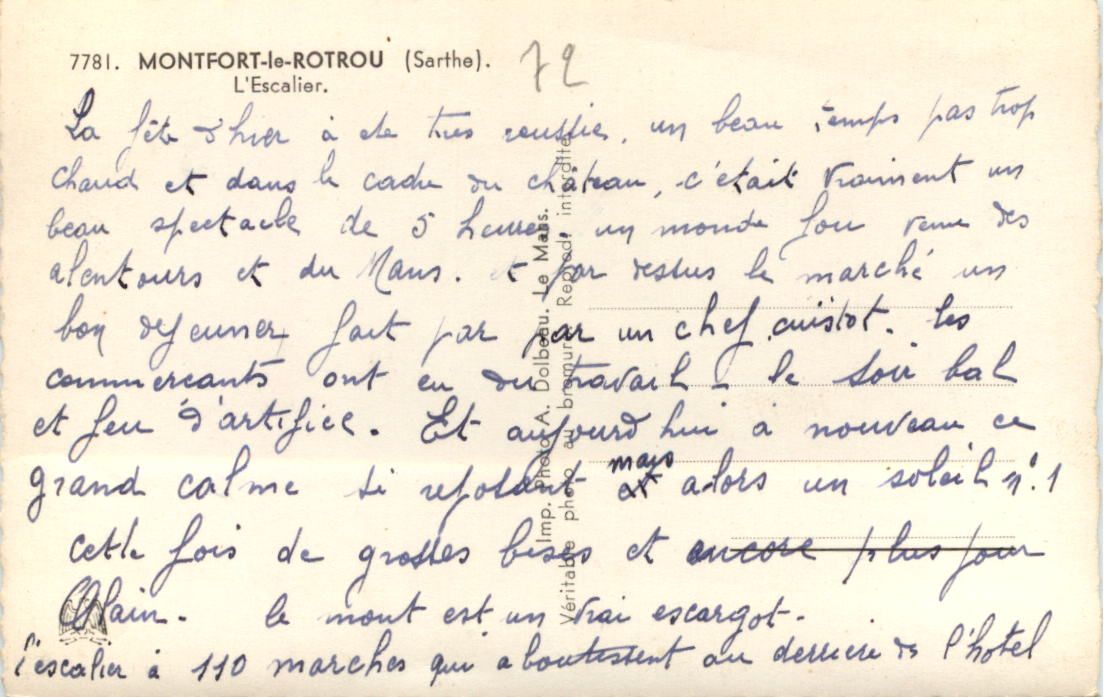 7781. MONTFORT-le-ROTROU (Sarthe).
L'Escalier.
72
La fête d'hier à ete tres reussie, un beau temps pas trop
chaud et dans le cadre du château, c'était vraiment un
beau spectacle de 5 heures un monde fou venu des
alentours et du Mans. et par dessus le marché un
bon dejeuner fait par par un chef cuistot. les
commercants ont eu du travail - le soir bal
et feu d'artifice. Et aujourd'hui à nouveau ce
grand calme si reposant mais alors un soleil n°.1
cette fois de grosses bises et encore plus pour
Alain. le mont est un vrai escargot.
l'escalier à 110 marches qui aboutissent au derriere de l'hotel
Imp. Photo A. Dolbeau. Le Mans.
Véritable photo au bromure. Reprod. interdite.